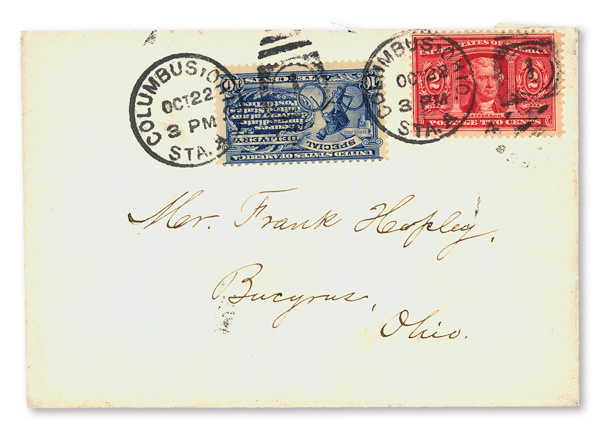 COLUMBUS, O.
OCT 22
3 PM
STA.
UNITED STATES OF AMERICA
SPECIAL
DELIVERY
COLUMBUS, O.
OCT 22
3 PM
STA.
UNITED STATES OF AMERICA
2 2
POSTAGE TWO CENTS
Mr. Frank Hopley,
Bucyrus,
Ohio.